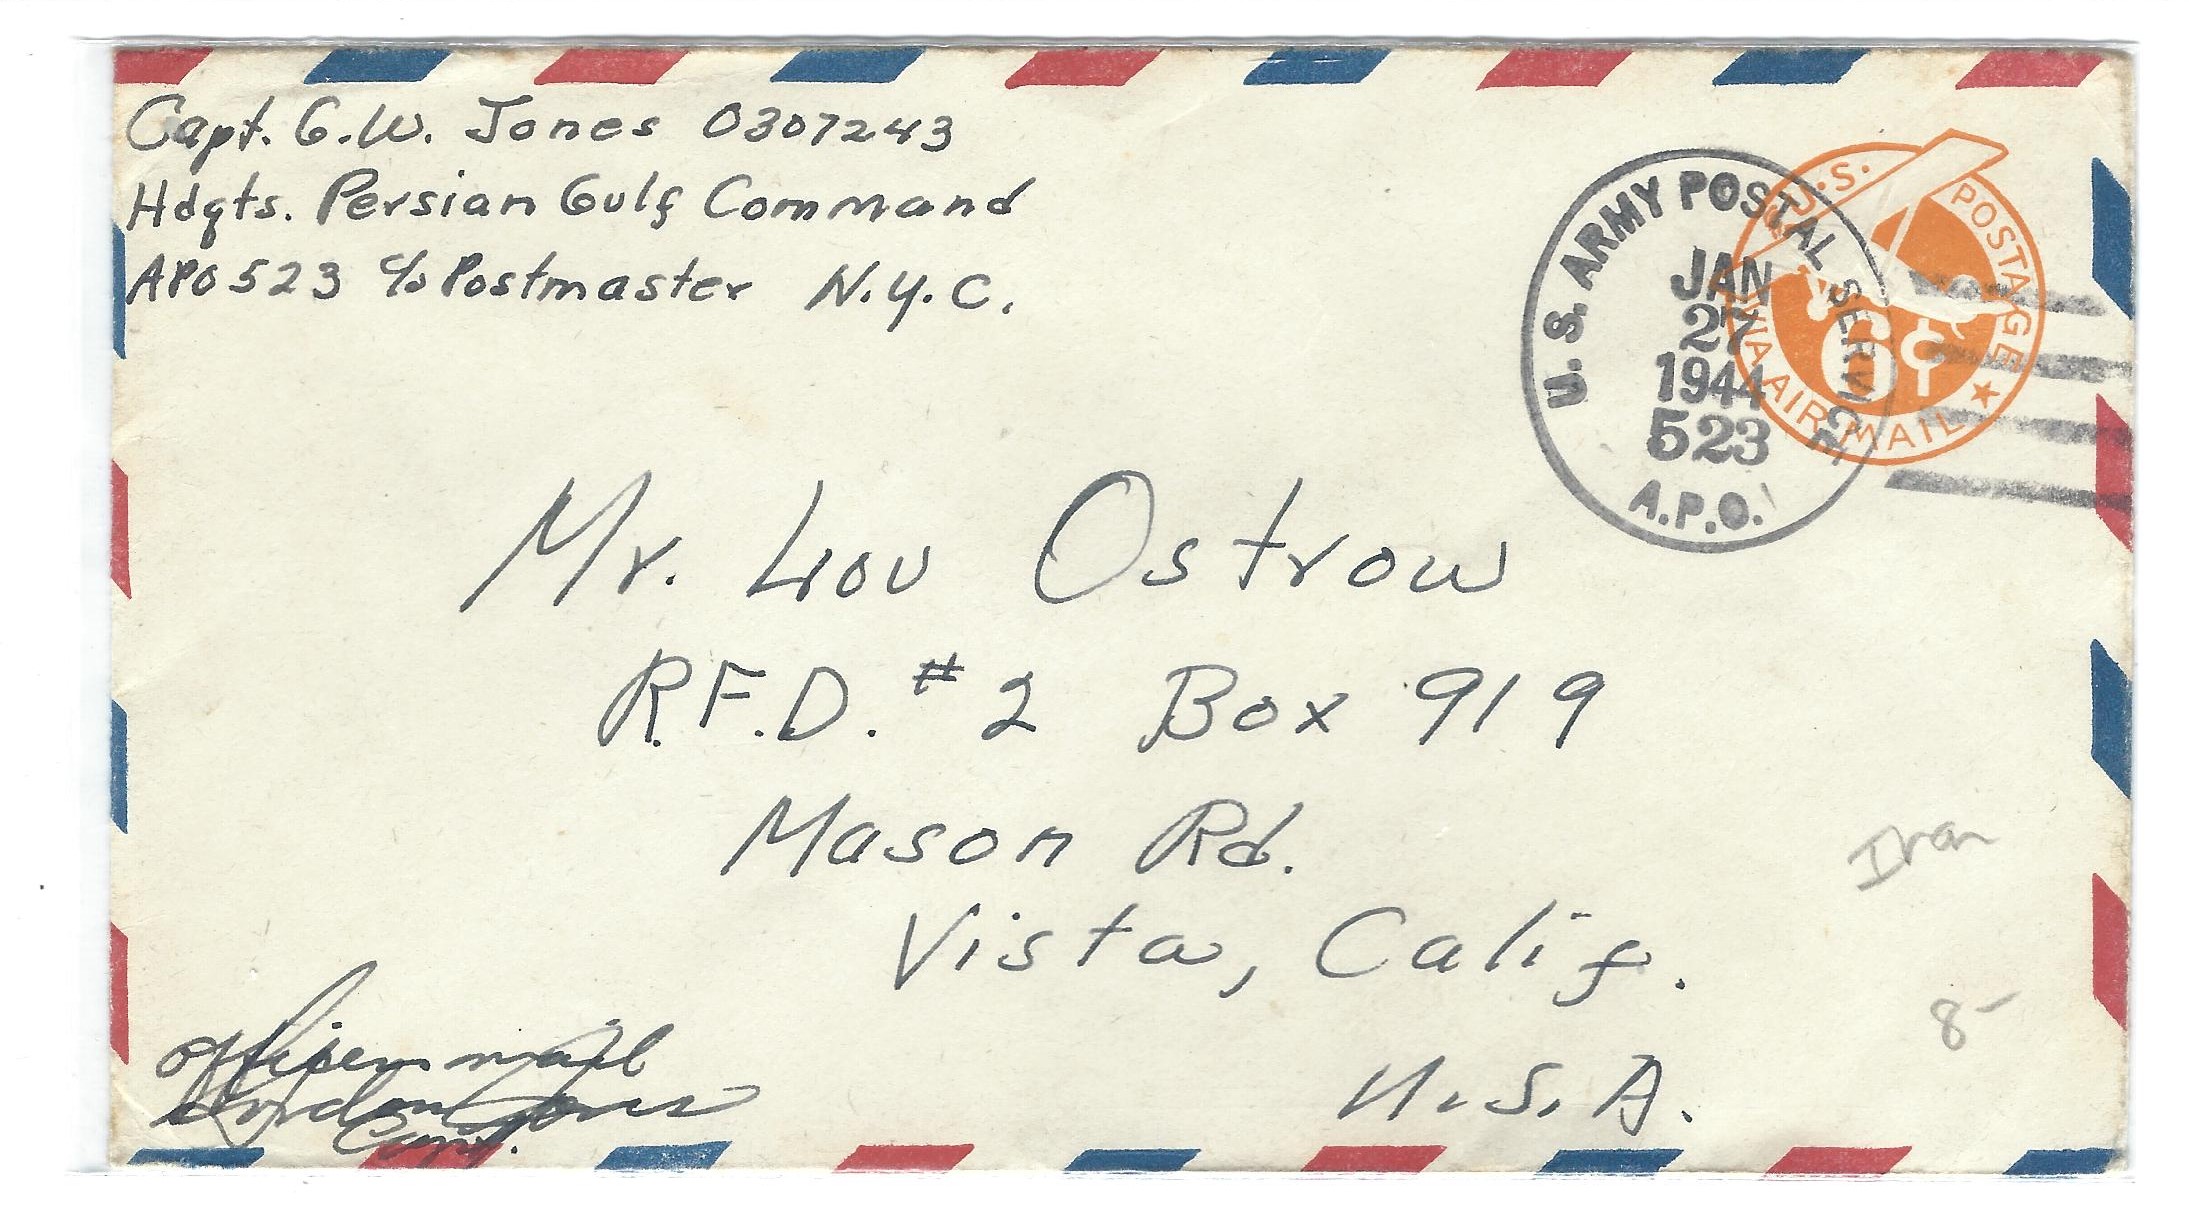 Capt. G.W. Jones 0307243
Hdqts. Persian Gulf Command
APO 523 c/o Postmaster N.Y.C.
U.S. ARMY POSTAL SERVICE
JAN
27
1944
523
A.P.O.
U.S. POSTAGE
6¢
VIA AIR MAIL
Mr. Lou Ostrow
R.F.D. #2 Box 919
Mason Rd.
Vista, Calif.
U.S.A.
Iran
8-
Officers mail
Gordon Jones
Capt.